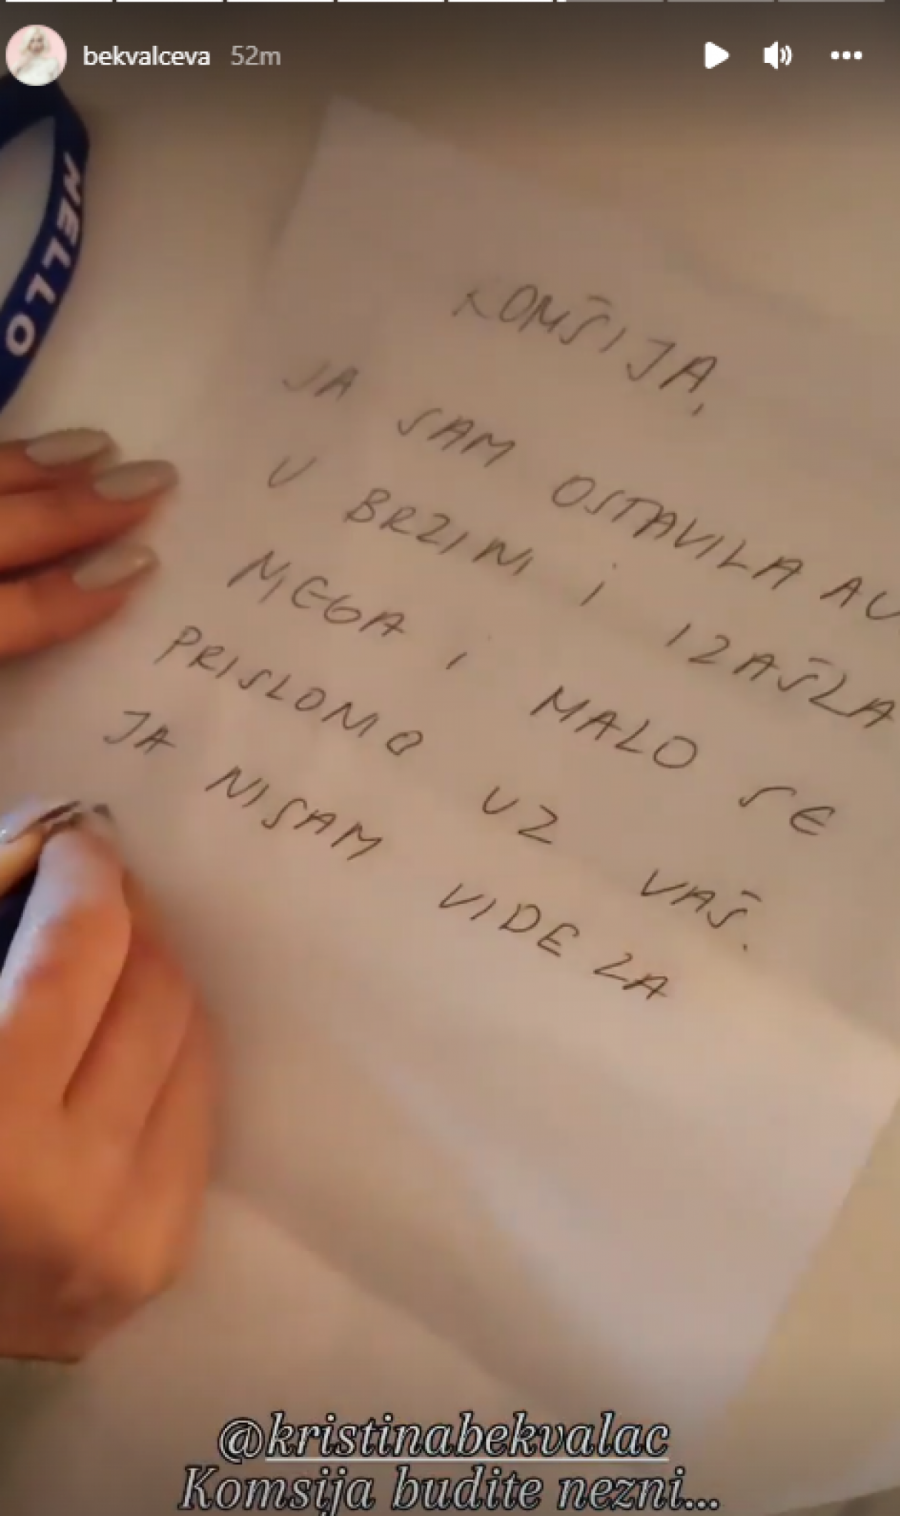 bekvalceva 52m
NELLO
KOMŠIJA,
JA SAM OSTAVILA AU
U BRZINI i IZAŠLA
NJEGA i MALO SE
PRISLONIO UZ VAŠ.
JA NISAM VIDELA
@kristinabekvalac
Komsija budite nezni...